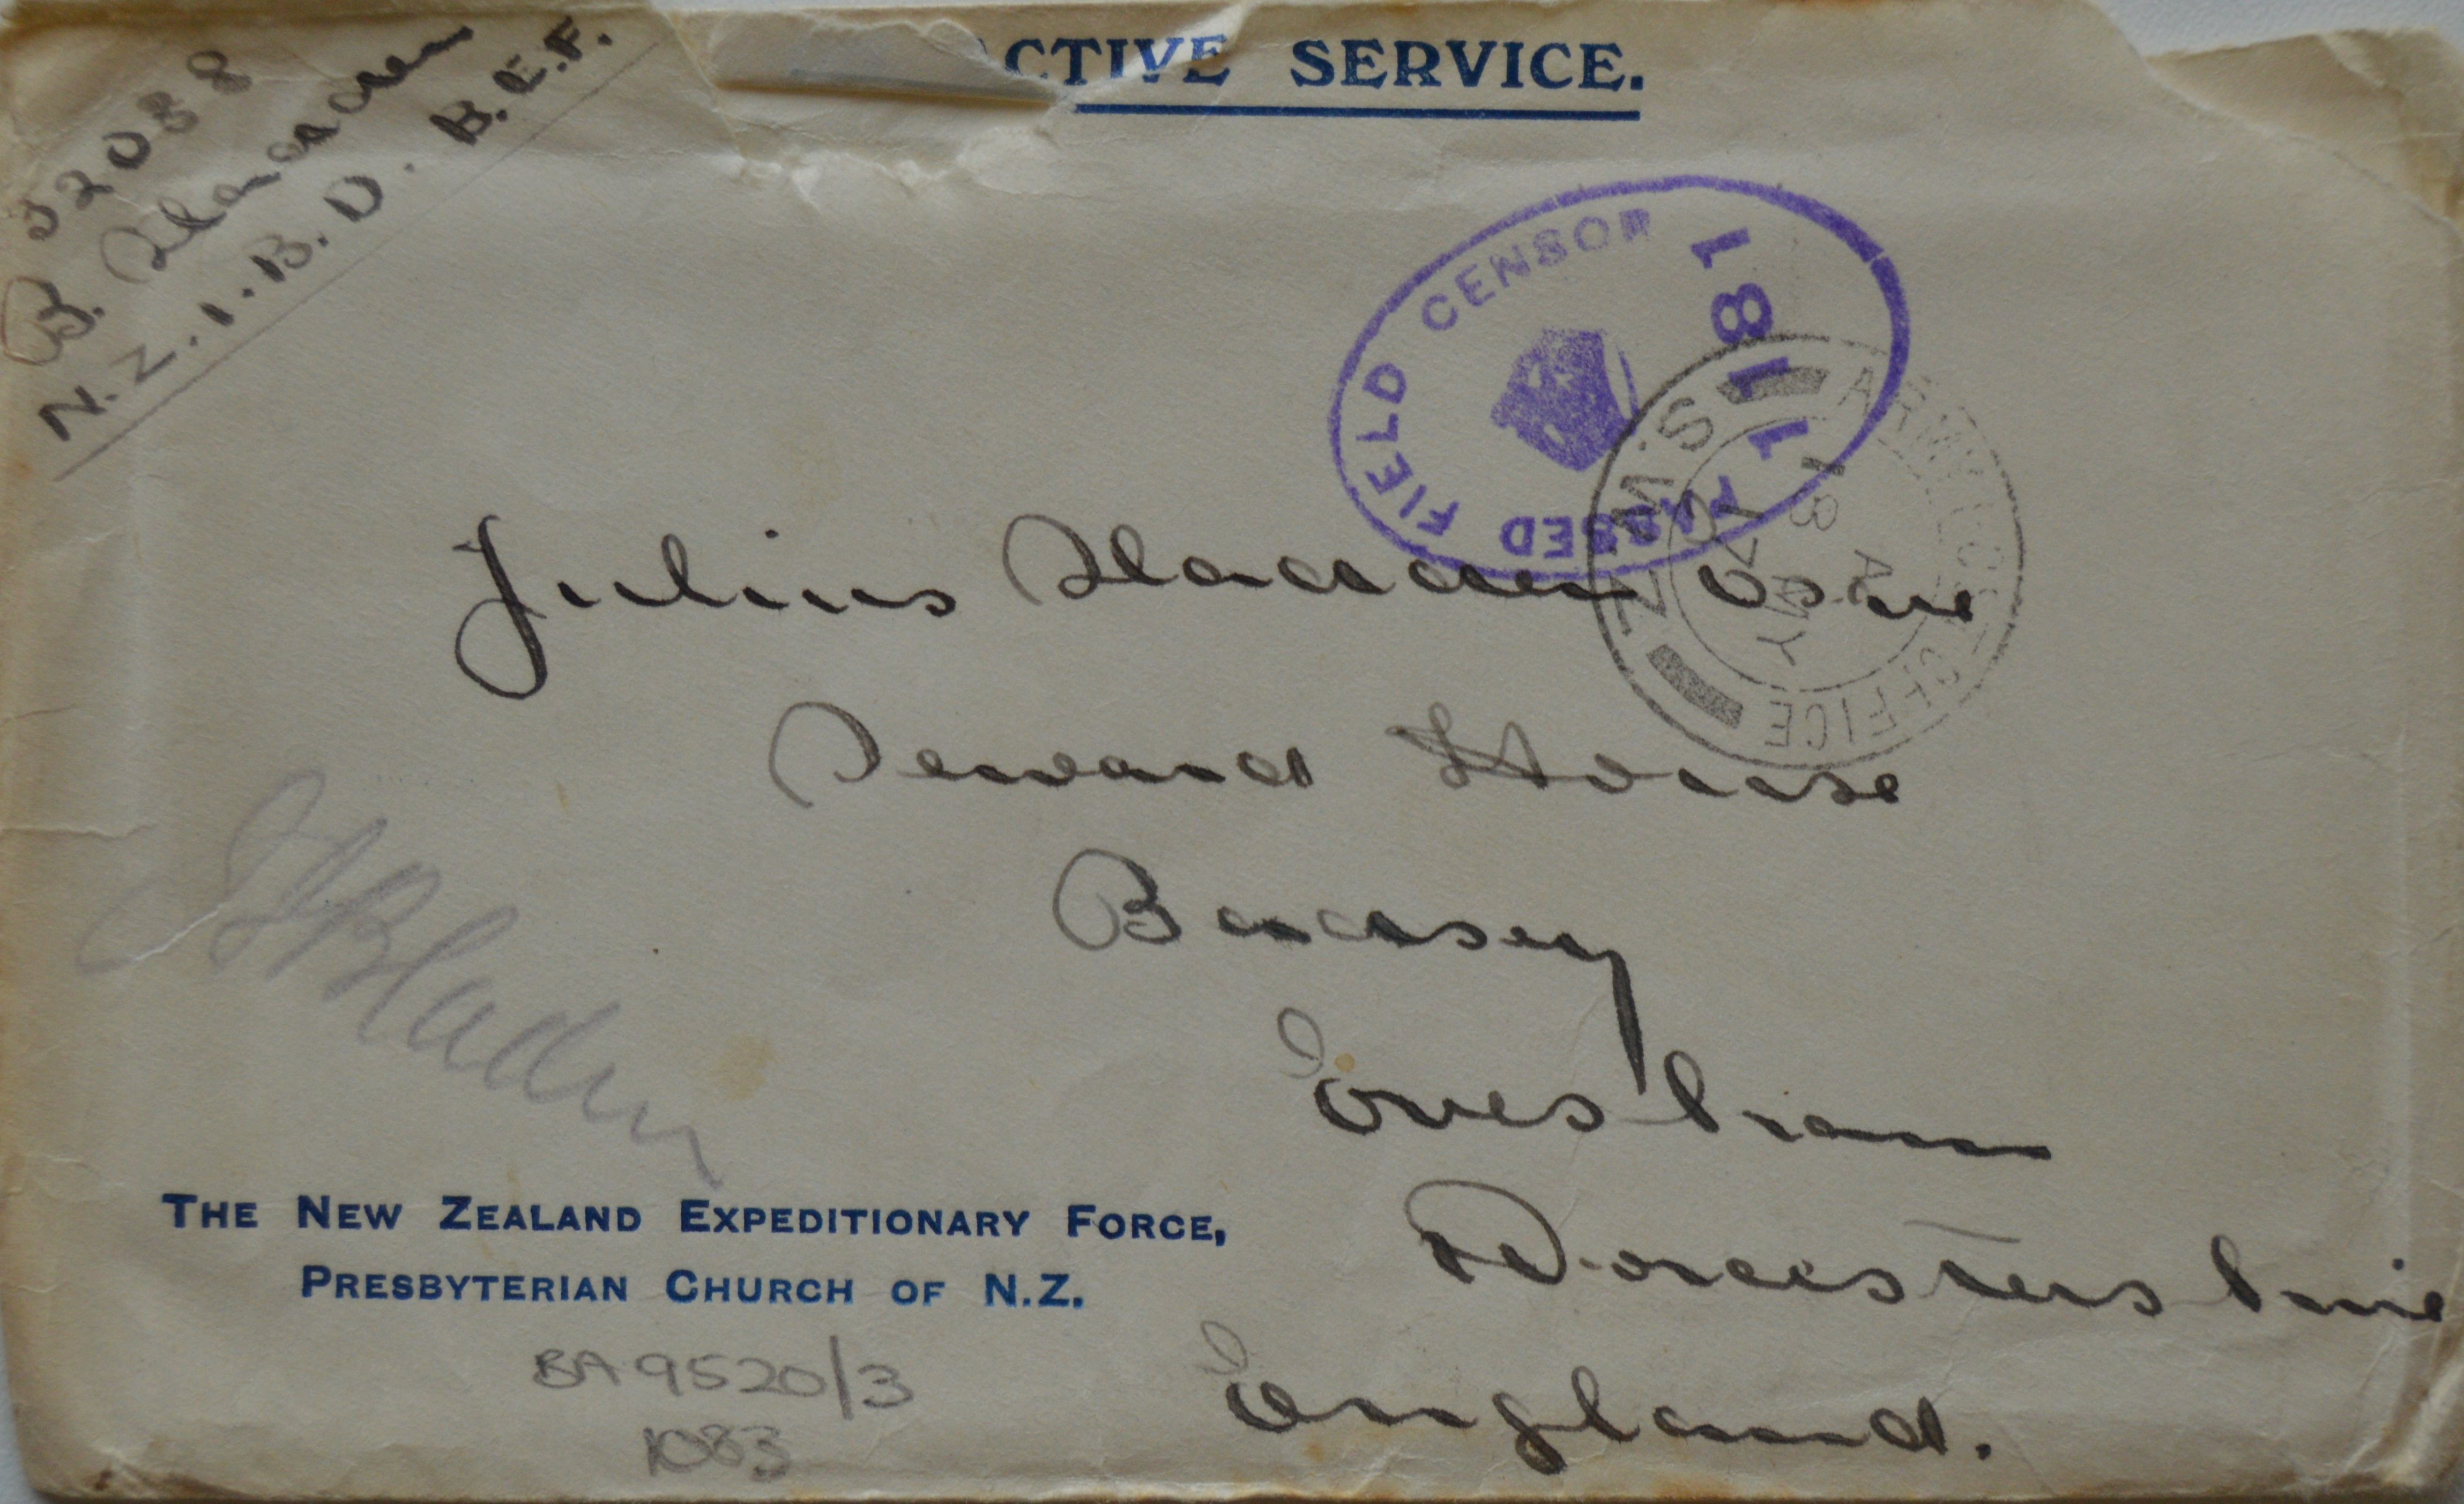 ACTIVE SERVICE.
32088
B. Sladden
N.Z.I.B.D. B.E.F.
PASSED FIELD CENSOR
181
N.Z.M.S
ARMY POST OFFICE
MY
18
Julius Sladden Esqre
Seward House
Badsey
Evesham
Worcestershire
England.
Bladen
THE NEW ZEALAND EXPEDITIONARY FORCE,
PRESBYTERIAN CHURCH OF N.Z.
BA 9520/3
1083